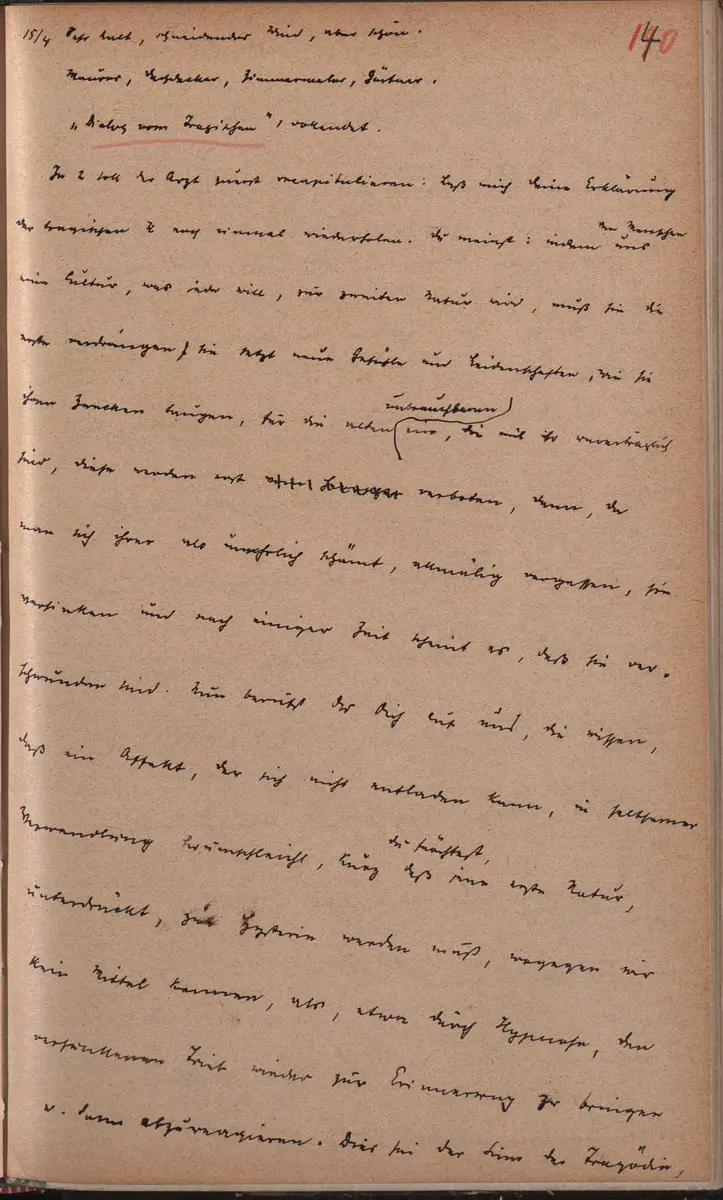 140
15/4 Sehr kalt, schneidender Wind, aber schön.
Maurer, Dachdecker, Zimmermaler, Gärtner.
„Dialog vom Tragischen", vollendet.
In 2 soll der Arzt zuerst recapitulieren: Laß mich deine Erklärung
den Menschen
der tragischen K noch einmal wiederholen. Du meinst: indem uns
eine Cultur, was jede will, zur zweiten Natur wird, muß sie die
erste verdrängen, sie setzt neue Gefühle und Leidenschaften, wie sie
unbrauchbaren
ihren Zwecken taugen, für die alten ein, die mit ihr unverträglich
sind, diese werden erst verboten, dann, da
man sich ihrer als unehrlich schämt, allmälig vergessen, sie
versinken und nach einiger Zeit scheint es, daß sie ver-
schwunden sind. Nun berufst du Dich auf uns, die wissen,
daß ein Affekt, der sich nicht entladen kann, in seltsamer
du fürchtest,
Verwandlung herumschleicht, kurz daß jene erste Natur,
unterdrückt, zur Hysterie werden muß, wogegen wir
kein Mittel kennen, als, etwa durch Hypnose, den
versunkenen Trieb wieder zur Erinnerung zu bringen
u. dann abzureagieren. Dies sei der Sinn der Tragödie,